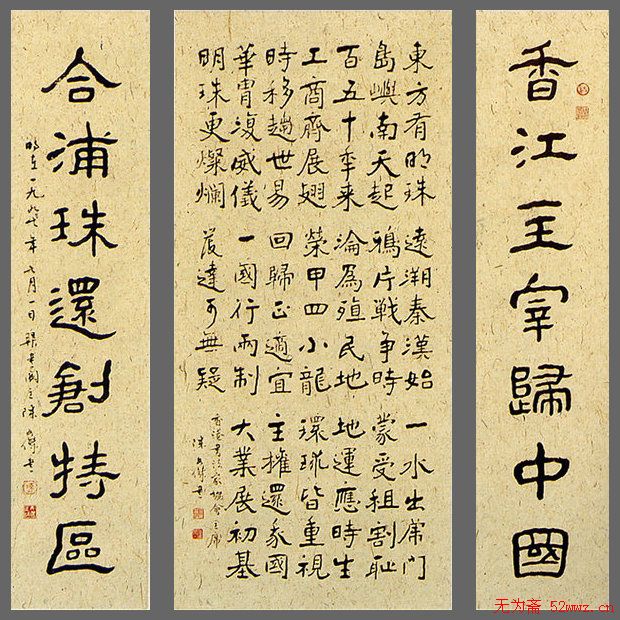 香江主宰歸中國
東方有明珠 遠溯秦漢始 一水出虎門
島嶼南天起 鴉片戰爭時 蒙受租割恥
百五十年来 淪為殖民地 地運應時生
工商齊展翅 榮甲四小龍 環球皆重視
時移趨世易 回歸正適宜 主權還國
華胄復威儀 一國行兩制 大業展初基
明珠更燦爛 發達可無疑
香港書法家協會主席
陳文傑書
合浦珠還創特區
時在一九九七年七月一日 陳文傑書
无为斋 52wwz.cn